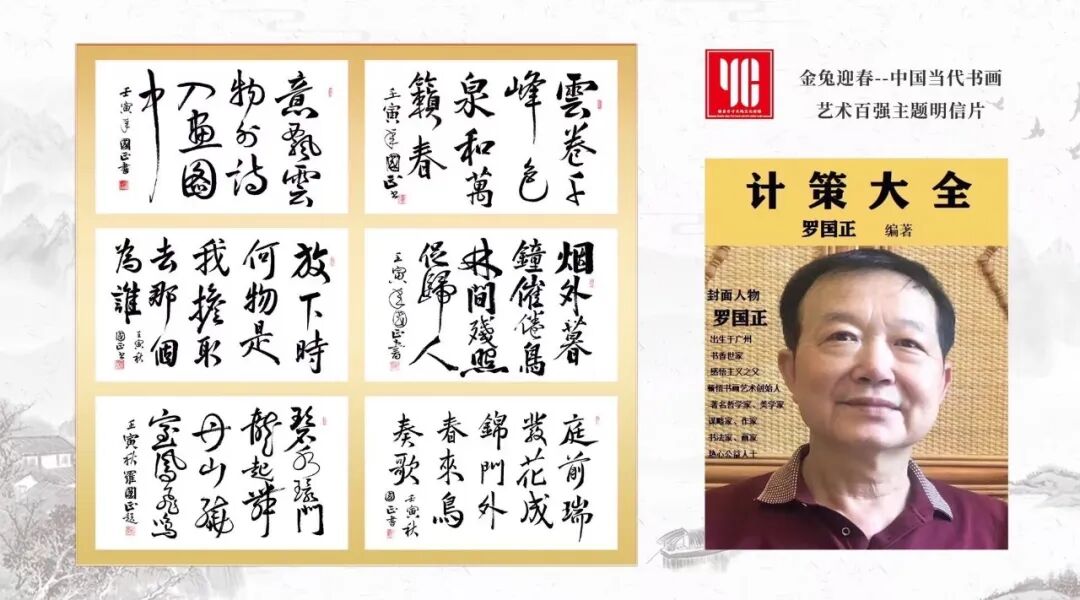 意飄雲
物外詩
入畫圖
中
壬寅年國正書
雲卷千
峰色
泉和萬
籟春
壬寅年國正書
放下時
何物是
我擔取
去那個
為誰
壬寅秋
國正書
烟外暮
鐘催倦鳥
林間殘照
促歸人
壬寅年國正書
碧水環門
龍起舞
丹山繞
室鳳飛鳴
壬寅秋羅國正題
庭前瑞
發花成
錦門外
春來鳥
奏歌
壬寅秋
國正書
金兔迎春--中国当代书画
艺术百强主题明信片
计策大全
罗国正 编著
封面人物
罗国正
出生于广州
书香世家
感悟主义之父
画艺术创始人
著名哲学家、美学家
谋略家、作家
书法家、画家
热心公益人士